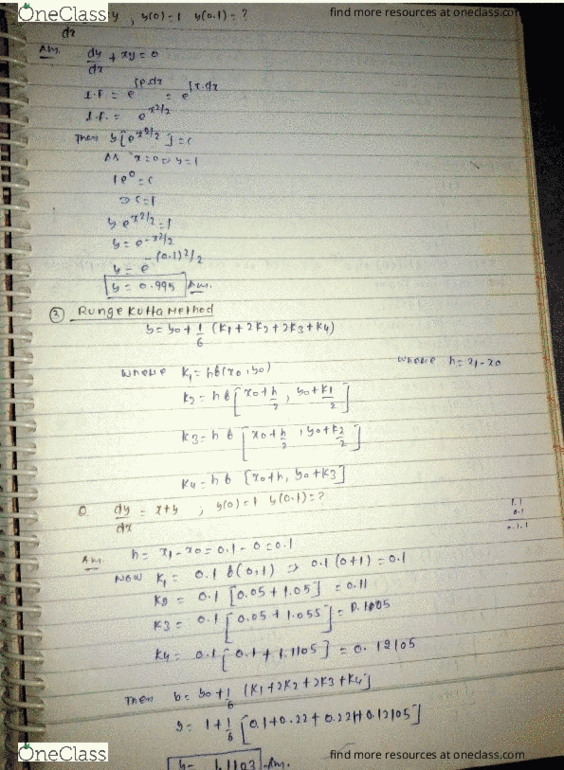 OneClass find more resources at oneclass.com
y , y(0)=1 y(0.1)=?
dx
Am. dy/dx + xy = 0
I.F. = e^∫p.dx = e^∫x.dx
I.F. = e^x²/2
Then y[e^x²/2] = c
As x=0 ⇒ y=1
1e⁰=c
⇒ c=1
y e^x²/2 = 1
y = e^-x²/2
y = e^-(0.1)²/2
y = 0.995 Am.
② Runge Kutta Method
y = y0 + 1/6 (K1 + 2K2 + 2K3 + K4)
where K1 = hf(x0, y0) where h = x1 - x0
K2 = hf [x0 + h/2, y0 + K1/2]
K3 = hf [x0 + h/2, y0 + K2/2]
K4 = hf [x0+h, y0+K3]
Q. dy/dx = x+y , y(0)=1 y(0.1)=?
1.1
0.1
Am. h = x1 - x0 = 0.1 - 0 = 0.1
Now K1 = 0.1 f(0,1) ⇒ 0.1 (0+1) = 0.1
K2 = 0.1 [0.05 + 1.05] = 0.11
K3 = 0.1 [0.05 + 1.055] = 0.1105
K4 = 0.1 [0.1 + 1.1105] = 0.12105
Then y = y0 + 1/6 [K1 + 2K2 + 2K3 + K4]
y = 1 + 1/6 [0.1 + 0.22 + 0.221 + 0.12105]
y = 1.1103 Am.
OneClass find more resources at oneclass.com